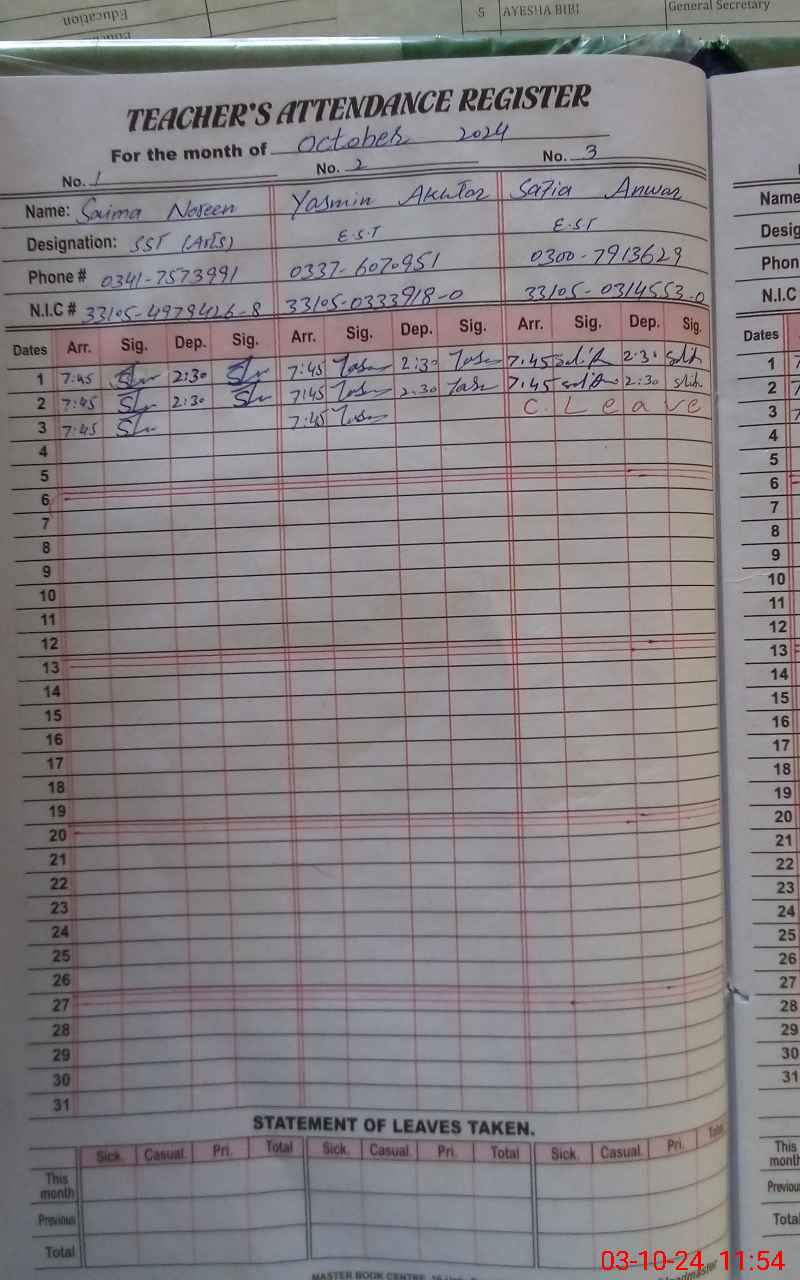 Education
5 AYESHA BIBI General Secretary
TEACHER'S ATTENDANCE REGISTER
For the month of October 2024
No. 1 No. 2 No. 3
Name: Saima Noreen Yasmin Akhtar Safia Anwar Name
Designation: SST (Arts) E.S.T E.S.T Desig
Phone # 0341-7573991 0337-6070951 0300-7913629 Phon
N.I.C # 33105-4979426-8 33105-0333918-0 33105-0314553-0 N.I.C
Dates Arr. Sig. Dep. Sig. Arr. Sig. Dep. Sig. Arr. Sig. Dep. Sig. Dates
1 7:45 2:30 7:45 2:30 7:45 2:30 1
2 7:45 2:30 7:45 2:30 7:45 2:30 2
3 7:45 7:45 C. Leave 3
4 4
5 5
6 6
7 7
8 8
9 9
10 10
11 11
12 12
13 13
14 14
15 15
16 16
17 17
18 18
19 19
20 20
21 21
22 22
23 23
24 24
25 25
26 26
27 27
28 28
29 29
30 30
31 31
STATEMENT OF LEAVES TAKEN.
Sick. Casual. Pri. Total Sick. Casual. Pri. Total Sick. Casual. Pri. Total
This month This month
Previous Previou
Total Total
MASTER BOOK CENTRE
03-10-24 11:54